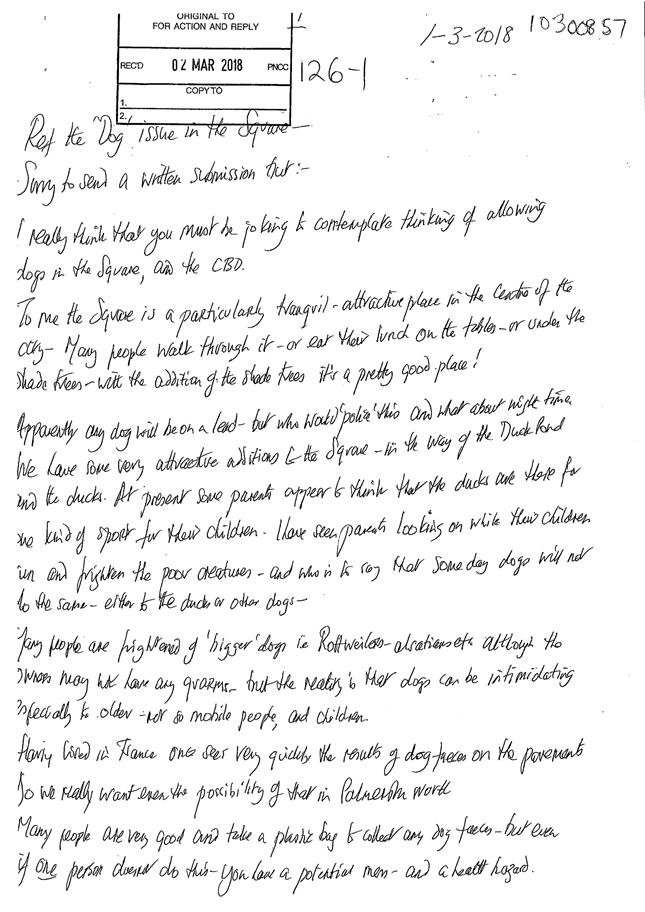 ORIGINAL TO
FOR ACTION AND REPLY
REC'D 02 MAR 2018 PNCC
COPY TO
1.
2.
126-1
1-3-2018 10300857
Ref the "Dog" issue in the Square —
Sorry to send a written submission but :-
I really think that you must be joking to contemplate thinking of allowing
dogs in the Square, and the CBD.
To me the Square is a particularly tranquil - attractive place in the Centre of the
city - Many people walk through it - or eat their lunch on the tables - or under the
shade trees - with the addition of the shade trees it's a pretty good place!
Apparently any dog will be on a lead - but who would 'police' this and what about night time
We have some very attractive additions to the Square - in the way of the Duck Pond
and the ducks. At present some parents appear to think that the ducks are there for
me kind of sport for their children. I have seen parents looking on while their children
run and frighten the poor creatures - and who is to say that some day dogs will not
do the same - either to the ducks or other dogs -
Many people are frightened of 'bigger' dogs ie Rottweilers - alsations etc although the
owners may not have any quarms - but the reality is that dogs can be intimidating
especially to older - not so mobile people, and children.
Having lived in France one sees very quickly the results of dog faeces on the pavements
Do we really want even the possibility of that in Palmerston North
Many people are very good and take a plastic bag to collect any dog faeces - but even
if one person doesnot do this - you have a potential mess - and a health hazard.